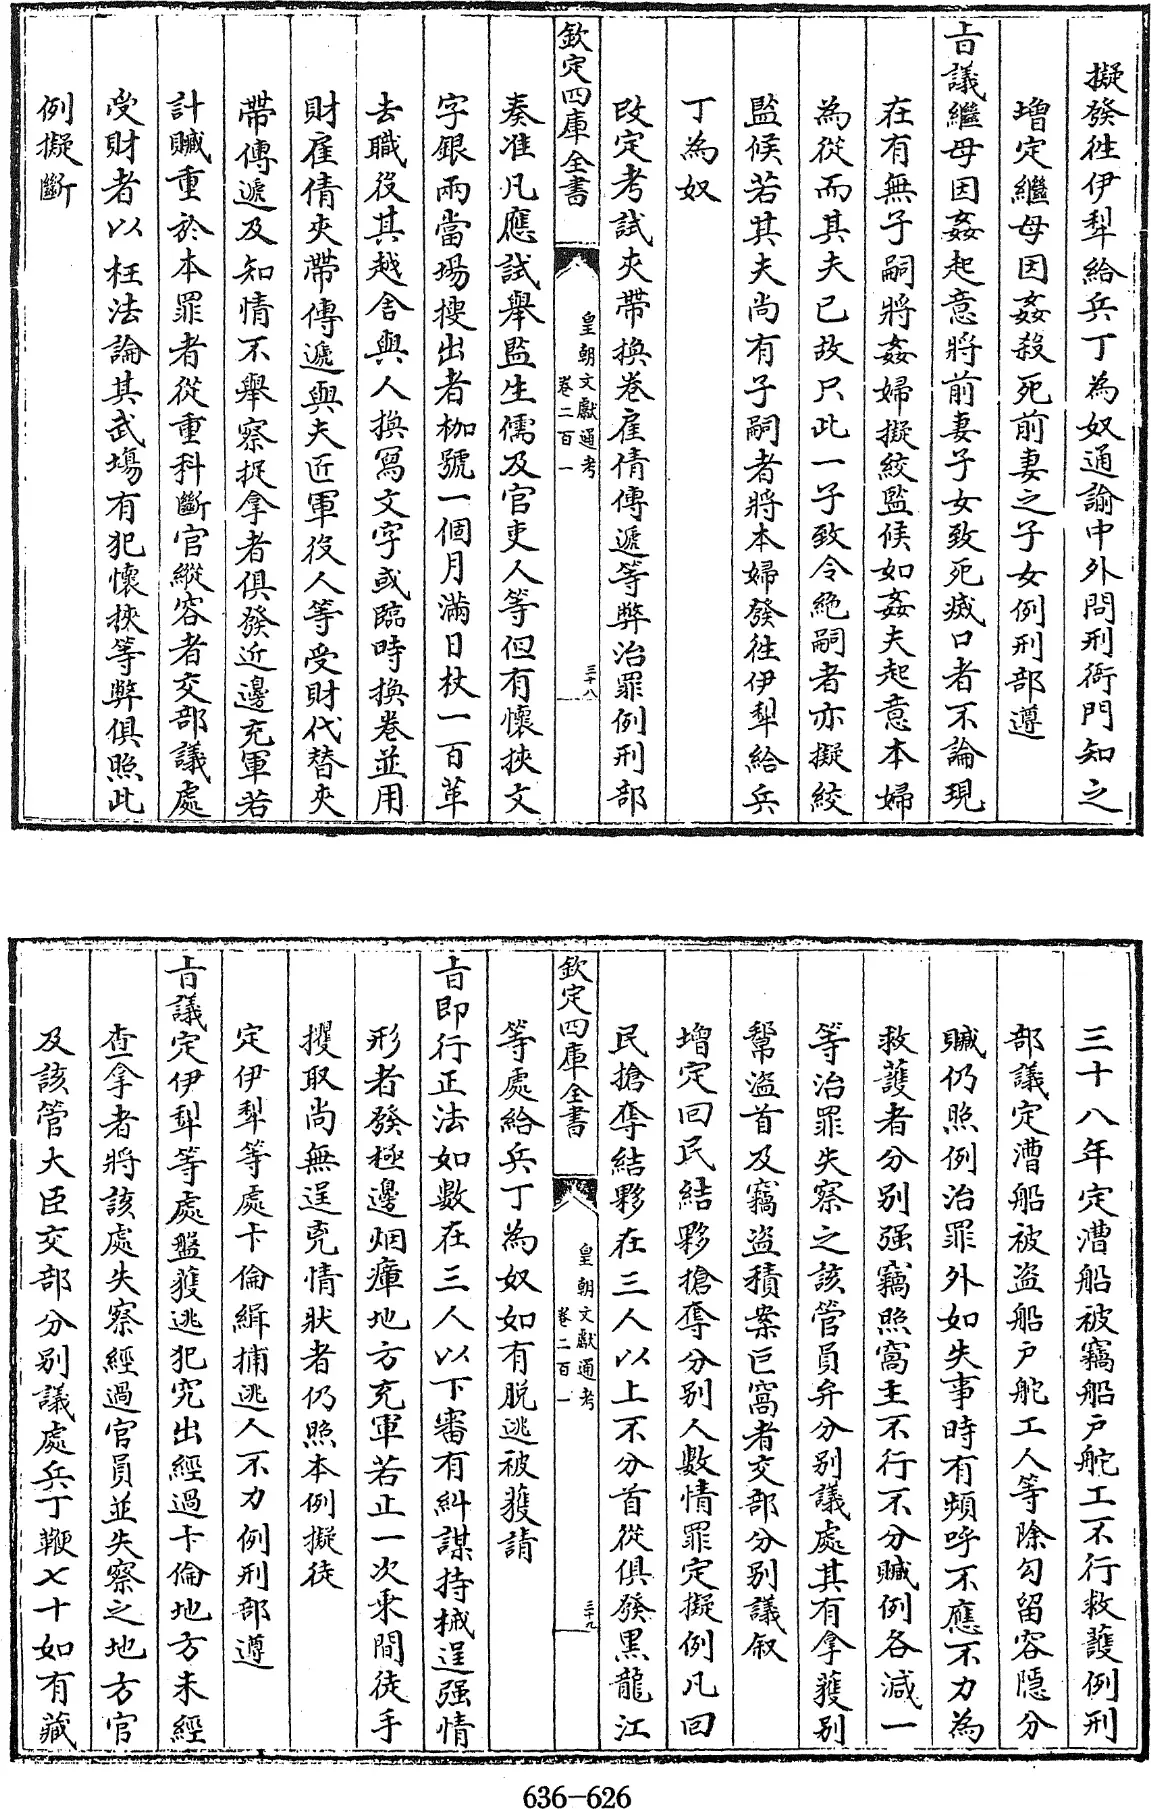 擬發徃伊犂給兵丁為奴通諭中外問刑衙門知之
增定繼母因姦殺死前妻之子女例刑部遵
旨議繼母因姦起意將前妻子女致死㓕口者不論現
在有無子嗣將姦婦擬絞監候如姦夫起意本婦
為從而其夫已故只此一子致令絶嗣者亦擬絞
監候若其夫尚有子嗣者將本婦發徃伊犂給兵
丁為奴
改定考試夾帶換卷雇倩傳遞等弊治罪例刑部
欽定四庫全書
皇朝文獻通考
卷二百一
三十八
奏准凡應試舉監生儒及官吏人等但有懷挾文
字銀兩當場搜出者枷號一個月滿日杖一百革
去職役其越舍與人換寫文字或臨時換卷並用
財雇倩夾帶傳遞與夫匠軍役人等受財代替夾
帶傳遞及知情不舉察捉拿者俱發近邊充軍若
計贓重於本罪者從重科斷官縱容者交部議處
受財者以枉法論其武場有犯懷挾等弊俱照此
例擬斷
三十八年定漕船被竊船户舵工不行救護例刑
部議定漕船被盜船户舵工人等除勾留容隱分
贓仍照例治罪外如失事時有頻呼不應不力為
救護者分別强竊照窩主不行不分贓例各減一
等治罪失察之該管員弁分別議處其有拿獲別
幫盜首及竊盜積案巨窩者交部分別議叙
增定回民結夥搶奪分別人數情罪定擬例凡回
民搶奪結夥在三人以上不分首從俱發黑龍江
欽定四庫全書
皇朝文獻通考
卷二百一
三十九
等處給兵丁為奴如有脱逃被獲請
旨即行正法如數在三人以下審有糾謀持械逞强情
形者發極邊烟瘴地方充軍若止一次乘間徒手
攫取尚無逞兇情狀者仍照本例擬徒
定伊犂等處卡倫緝捕逃人不力例刑部遵
旨議定伊犂等處盤獲逃犯究出經過卡倫地方未經
查拿者將該處失察經過官員並失察之地方官
及該管大臣交部分別議處兵丁鞭七十如有藏
636-626